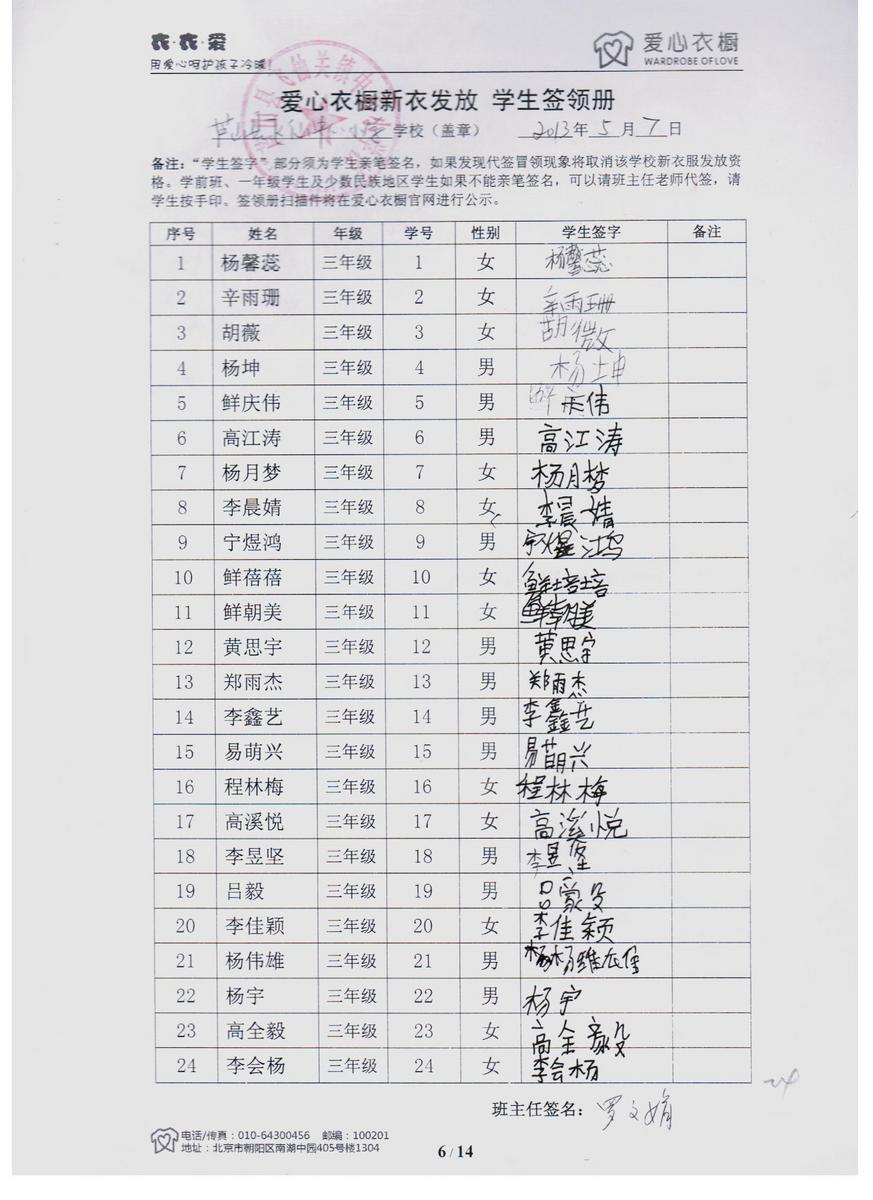 衣·衣·爱
用爱心呵护孩子冷暖!
爱心衣橱
WARDROBE OF LOVE
爱心衣橱新衣发放 学生签领册
学校（盖章） 2013年5月7日
备注：“学生签字”部分须为学生亲笔签名，如果发现代签冒领现象将取消该学校新衣服发放资
格。学前班、一年级学生及少数民族地区学生如果不能亲笔签名，可以请班主任老师代签，请
学生按手印。签领册扫描件将在爱心衣橱官网进行公示。
序号 姓名 年级 学号 性别 学生签字 备注
1 杨馨蕊 三年级 1 女 杨馨蕊
2 辛雨珊 三年级 2 女 辛雨珊
3 胡薇 三年级 3 女 胡微
4 杨坤 三年级 4 男 杨坤
5 鲜庆伟 三年级 5 男 鲜庆伟
6 高江涛 三年级 6 男 高江涛
7 杨月梦 三年级 7 女 杨月梦
8 李晨婧 三年级 8 女 李晨婧
9 宁煜鸿 三年级 9 男 宁煜鸿
10 鲜蓓蓓 三年级 10 女 鲜培培
11 鲜朝美 三年级 11 女 鲜朝美
12 黄思宇 三年级 12 男 黄思宇
13 郑雨杰 三年级 13 男 郑雨杰
14 李鑫艺 三年级 14 男 李鑫艺
15 易萌兴 三年级 15 男 易萌兴
16 程林梅 三年级 16 女 程林梅
17 高溪悦 三年级 17 女 高溪悦
18 李昱坚 三年级 18 男 李昱坚
19 吕毅 三年级 19 男 吕毅
20 李佳颖 三年级 20 女 李佳颖
21 杨伟雄 三年级 21 男 杨
22 杨宇 三年级 22 男 杨宇
23 高全毅 三年级 23 女 高全毅
24 李会杨 三年级 24 女 李会杨
24
班主任签名：罗文娟
电话/传真：010-64300456 邮编：100201
地址：北京市朝阳区南湖中园405号楼1304
6 / 14